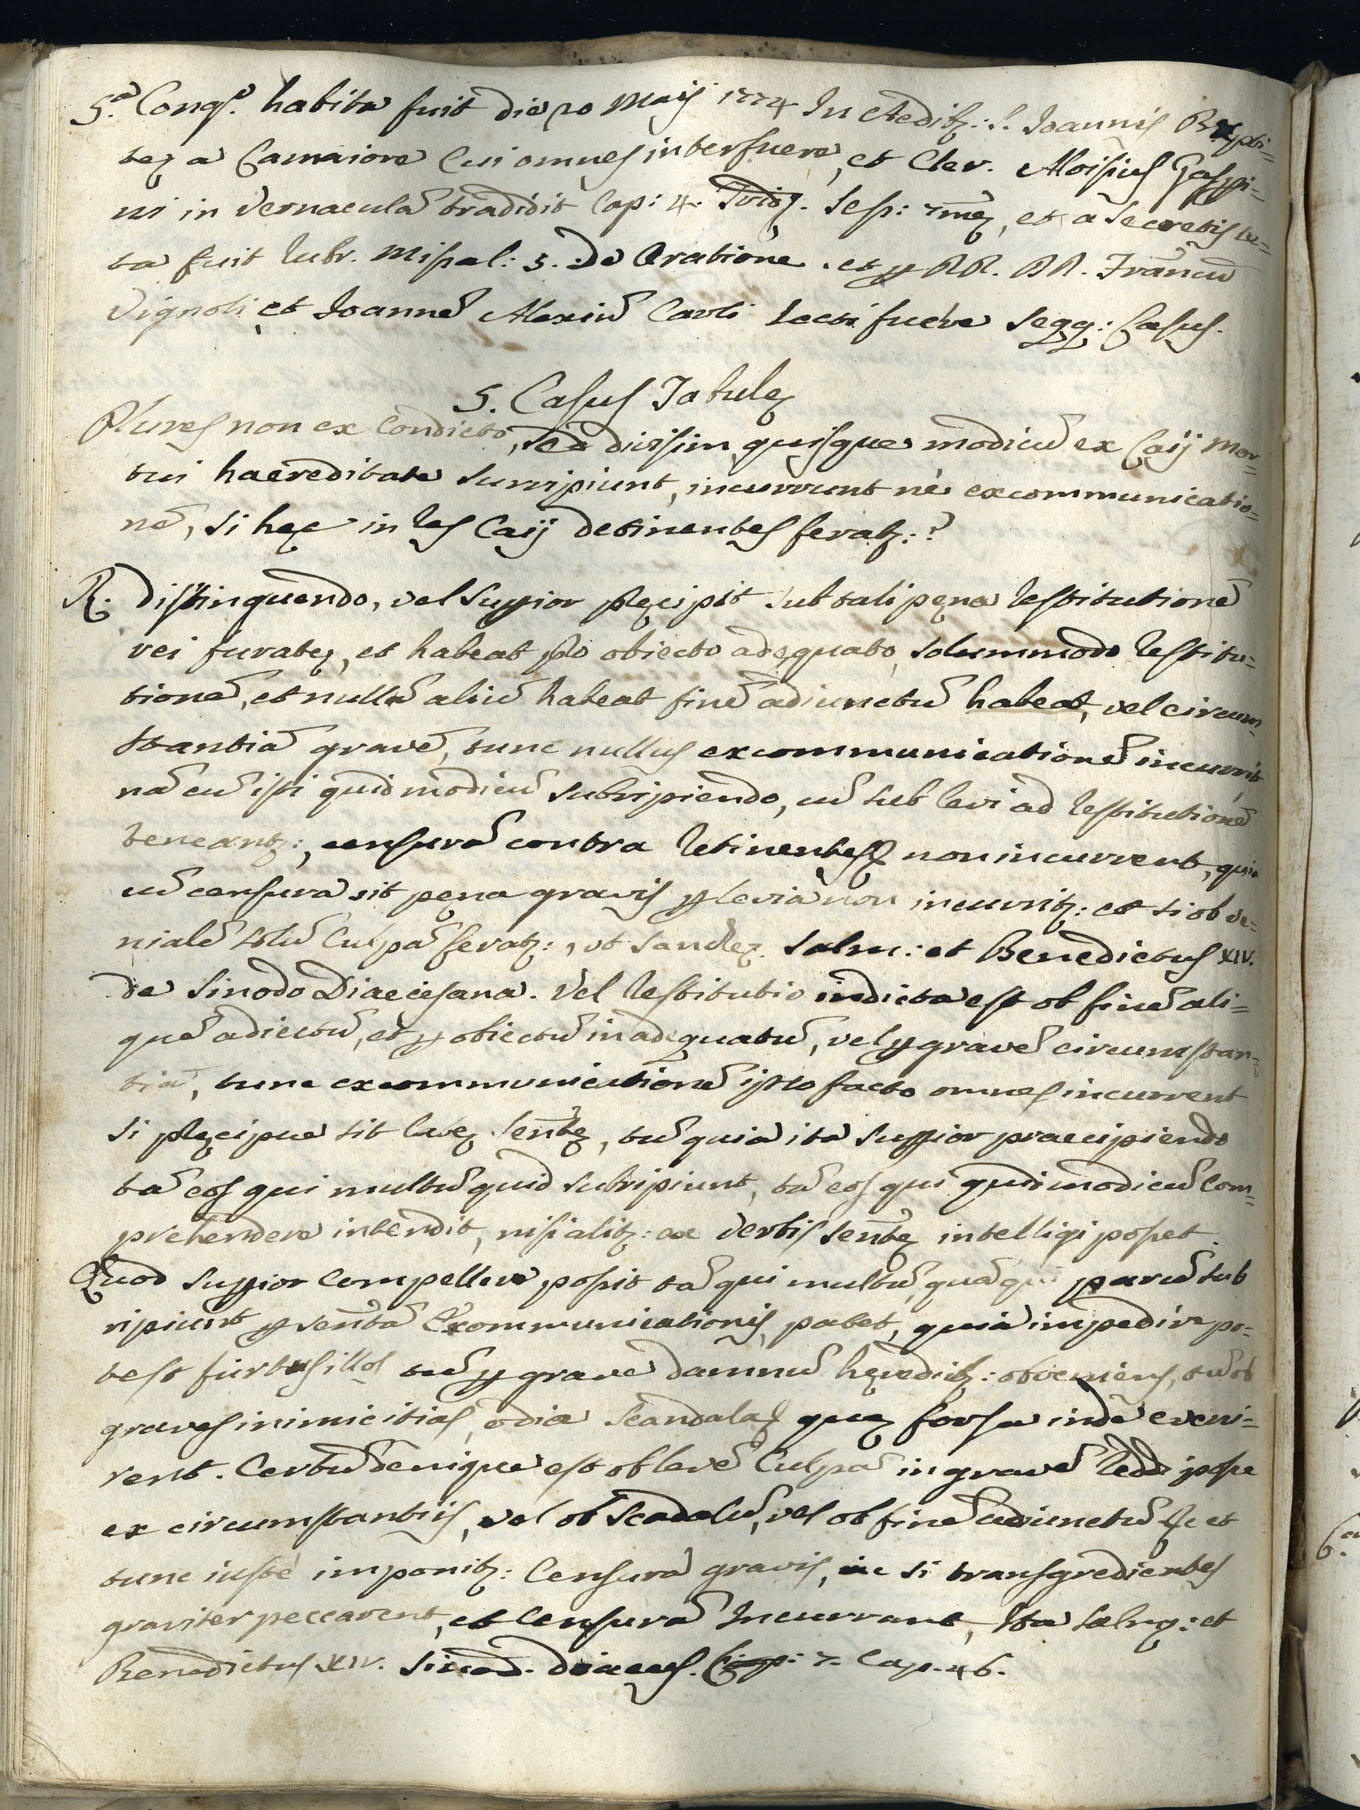 5.ª Cong.e habita fuit die 20 Maij 1774 In Aedib: S. Joannis Bapti=
tę a Camaiore Cui omnes interfuere, et Cler. Aloisius Gasspi=
ni in Vernaculã tradidit Cap: 4. Trid. Sess: 7mę, et a Secretis lec=
ta fuit Rubr. Missal: 5. De Oratione. et p RR. DD. Francũ
Vignoli et Joannẽ Alexiũ Carli lecti fuere seqq: Casus.
5. Casus Tabulę
Plures non ex Condicto, sed divisim quisque modicũ ex Caij Mor=
tui haereditate surripiunt, incurrunt nè excommunicatio=
nẽ, si hęc in res Caij detinentes feratʒ:?
R. distinguendo, vel Suppior pręcipit sub tali pęna restitutionẽ
rei furatę, et habeat pro obiecto adequato, solummodo restitu=
tionẽ, et nullũ aliũ habeat finẽ adiunctũ habeat, vel circum=
stantiã gravẽ, tunc nullus excommunicationẽ incurrit
nã cũ isti quid modicũ subripiendo, cũ sub levi ad restitutionẽ
teneantʒ:, censurã contra retinentes non incurrent, quia
cũ censura sit pęna gravis p leviã non incurritʒ: et si ob ve=
nialẽ solũ Culpã feratʒ:, ut Sanchez. Salm: et Benedictus XIV.
de Sinodo Diaecesana. Vel restitutio indicta est ob finẽ ali=
quẽ adiectũ, et p obiectũ inadequatũ, vel p gravẽ circumstan=
tiã, tunc excommunicationẽ ipso facto omnes incurrent
si pręcipue sit latę sentę, tũ quia ita Suppior praecipiendo
tã eos qui multũ quid subripiunt, tã eos qui quid modicũ Com=
prehendere intendit, nisi alitʒ: ex verbis sentę intelligi posset.
Quod Suppior Compellere possit tã qui multũ, quã qui parũ sub
ripiunt p sentã Excommunicationis, patet, quia impedire po=
test furtusillos tũ p gravẽ damnũ hęredibʒ: obveniens, tũ ob
graves inimicitias, odia scandala quę forsa inde eveni=
rent. Certũ denique est ob levẽ Culpã in gravẽ reddi posse
ex circumstantiis, vel ob scadalũ, vel ob finẽ adiunctũ et
tunc iustè imponitʒ: Censura gravis, ac si transgredientes
graviter peccarent, et Censurã Incurrant, Ita Salm: et
Benedictus XIV. Sinod. diaeces. 7. Cap. 46.